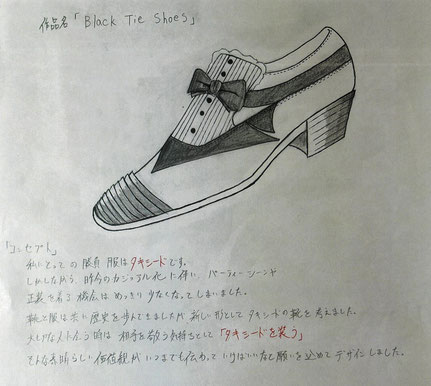 作品名「Black Tie Shoes」
「コンセプト」
私にとっての 服は タキシードです。
しかしながら 昨今のカジュアル化に伴い、パーティーシーンや
正装を着る機会は めっきり少なくなってしまいました。
靴と服は共に歴史を歩んできましたが 新しい形として タキシードの靴を考えました。
時は 相手を敬う気持ちとして 「タキシードを装う」
そんな素晴らしい価値観が いつまでも伝わって いけばいいなと願いを込めて デザインしました。